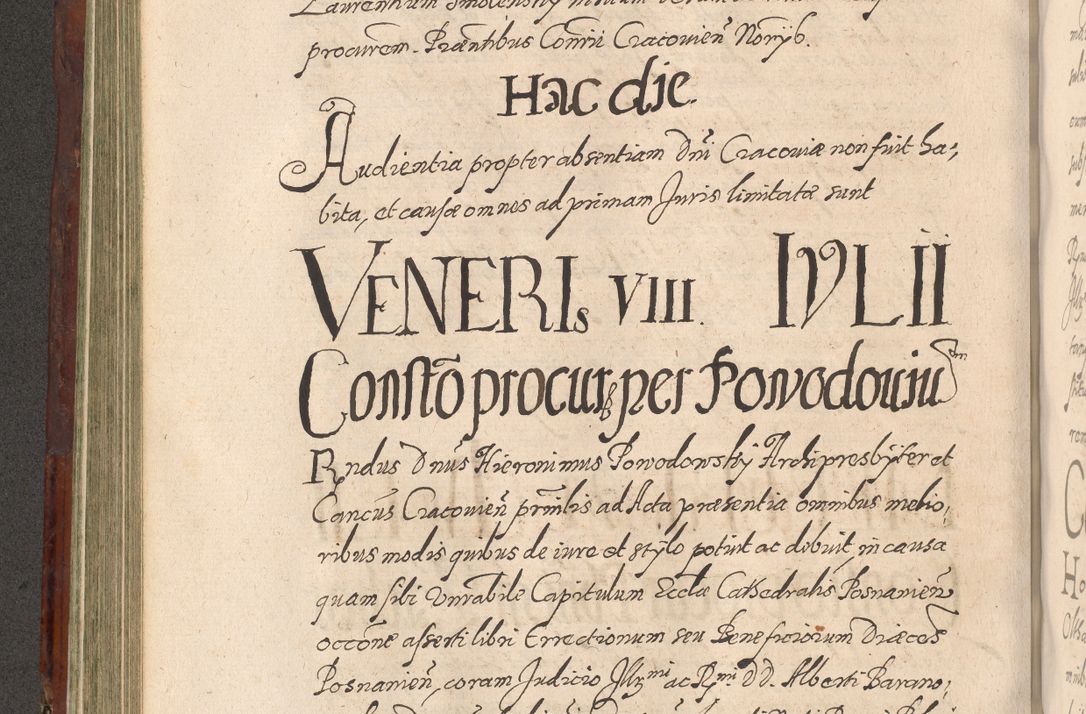 procurem. Præntibus Comrii Cracovień Norijb.
Hac die.
Audientia propter absentiam Dnī Cracoviæ non fuit ha,
bita, et causæ omnes ad primam Juris limitatæ sunt
VENERIs VIII. IVLII
Constō procur per Powodoviu
Rndus Dnūs Hieronimus Powodowskij Archipresbÿter et
Cancūs Cracovień prīnlis ad Acta præsentia omnibus melio,
ribus modis quibus de iure et stÿlo potuit ac debuit, in causa
quam sibi Vnrabile Capitulum Ecclæ Cathedralis Posnanień
occōne asserti libri Errectionum seu Beneficiorum Diæcēs
Posnanień, coram Judicio Illmi ac Rmi DD. Alberti Barano,